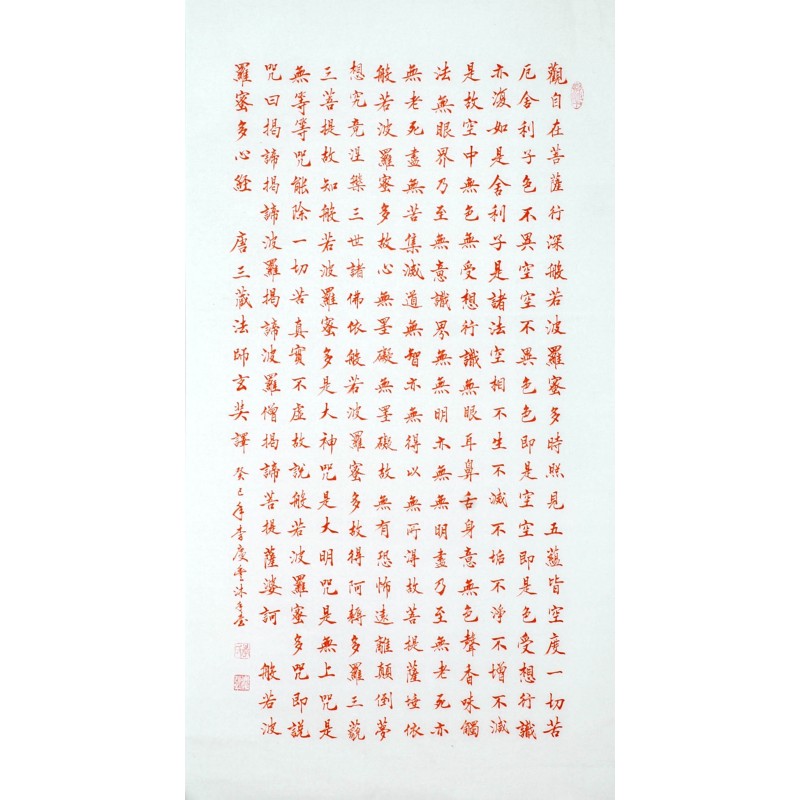 觀自在菩薩行深般若波羅蜜多時照見五蘊皆空度一切苦
厄舍利子色不異空空不異色色即是空空即是色受想行識
亦復如是舍利子是諸法空相不生不滅不垢不淨不增不減
是故空中無色無受想行識無眼耳鼻舌身意無色聲香味觸
法無眼界乃至無意識界無無明亦無無明盡乃至無老死亦
無老死盡無苦集滅道無智亦無得以無所得故菩提薩埵依
般若波羅蜜多故心無罣礙無罣礙故無有恐怖遠離顛倒夢
想究竟涅槃三世諸佛依般若波羅蜜多故得阿耨多羅三藐
三菩提故知般若波羅蜜多是大神咒是大明咒是無上咒是
無等等咒能除一切苦真實不虛故說般若波羅蜜多咒即說
咒曰揭諦揭諦波羅揭諦波羅僧揭諦菩提薩婆訶 般若波
羅蜜多心經 唐三藏法師玄奘譯 癸巳年李 沐手書